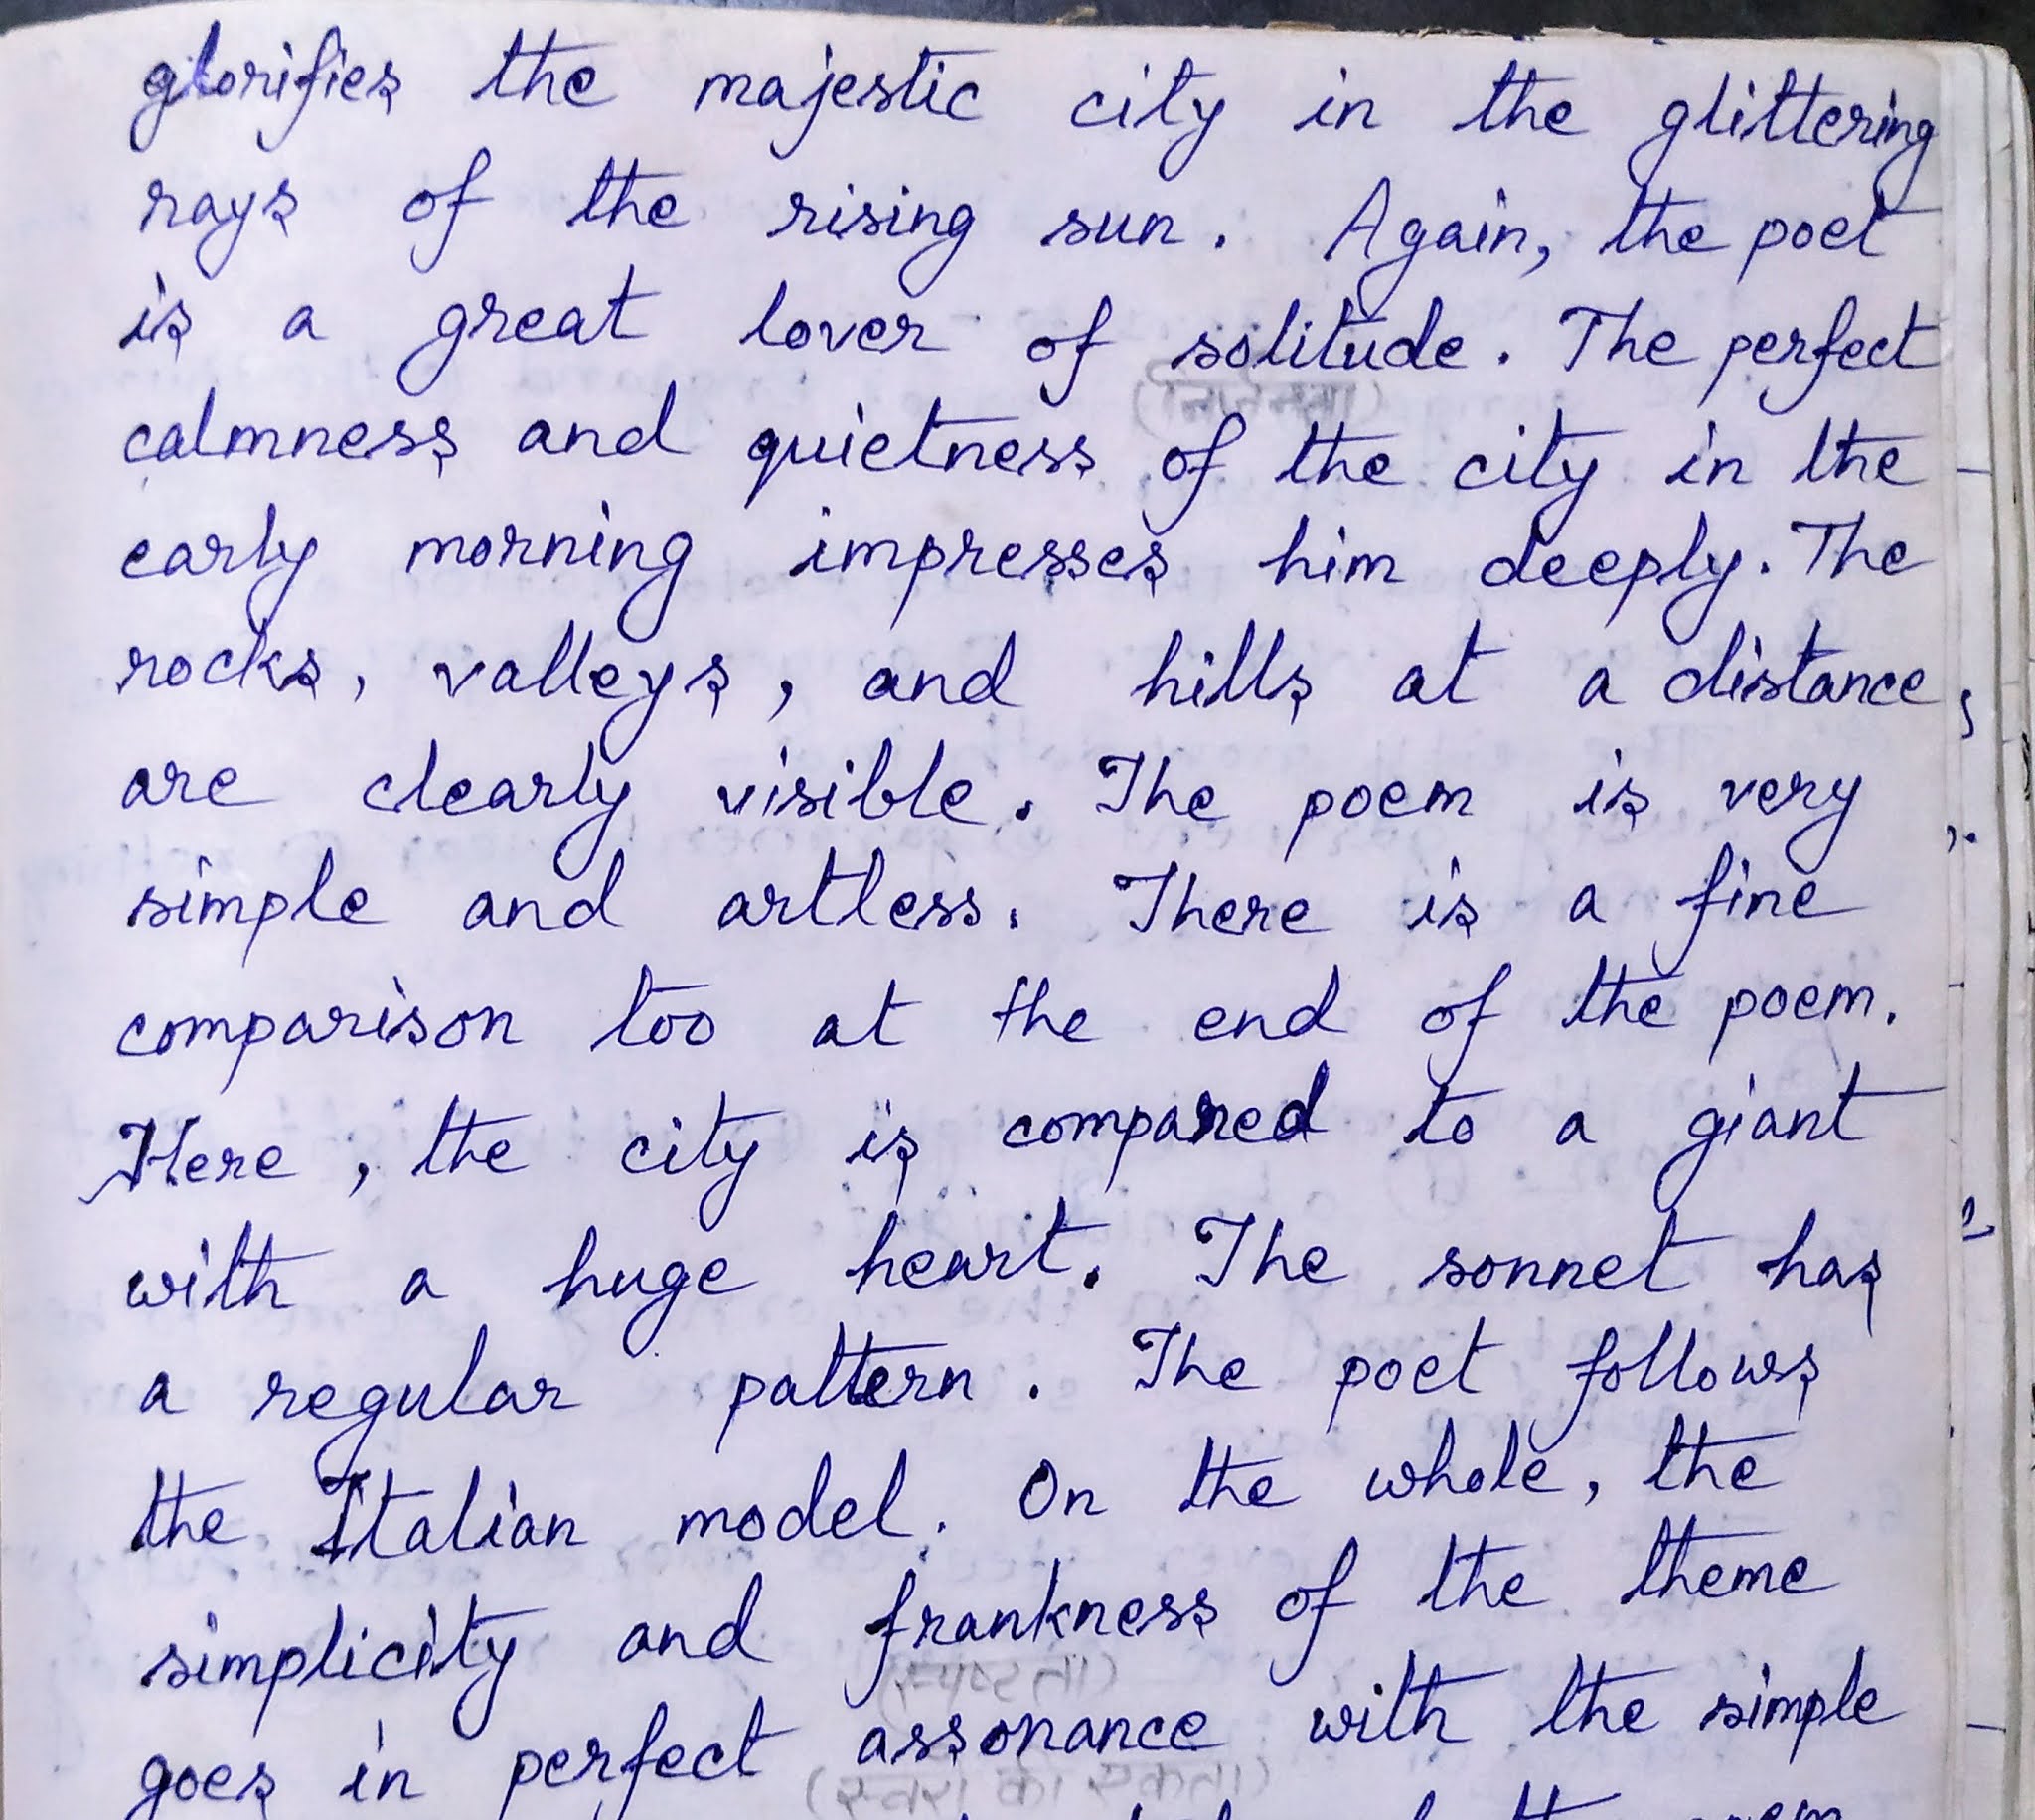 glorifies the majestic city in the glittering
rays of the rising sun. Again, the poet
is a great lover of solitude. The perfect
(निर्जनता)
calmness and quietness of the city in the
early morning impresses him deeply. The
rocks, valleys, and hills at a distance,
are clearly visible. The poem is very
simple and artless. There is a fine
comparison too at the end of the poem.
Here, the city is compared to a giant
with a huge heart. The sonnet has
a regular pattern. The poet follows
the Italian model. On the whole, the
simplicity and frankness of the theme
goes in perfect assonance with the simple
(स्वरों की एकता)